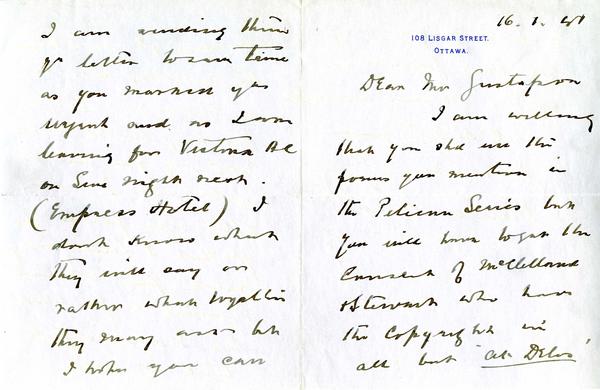 16. 1. 41
108 LISGAR STREET.
OTTAWA.
Dear Mr Gustafson
I am willing
that you shd use the
poems you mention in
the Pelican Series but
you will have to get the
Consent of McClelland
& Stewart who have
the Copyright in
all but 'At Delos'
I am sending this
yr letter to save time
as you marked yrs
urgent and as I am
leaving for Victoria BC
on Sun night next.
(Empress Hotel) I
don't know what
they will say or
rather what royalties
they may ask but
I hope you can